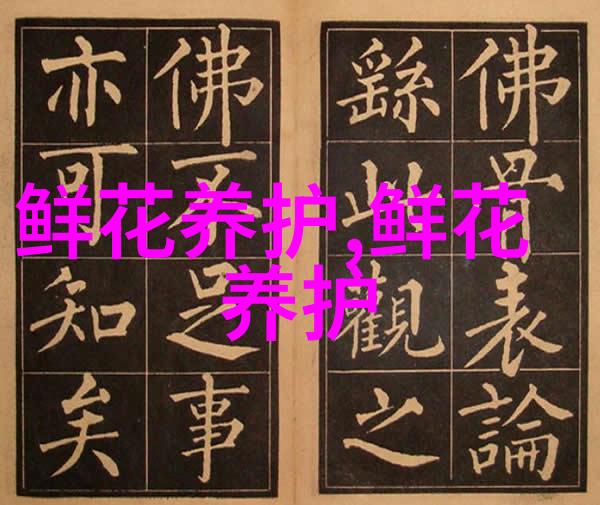 鲜花养护,鲜花
养护
佛骨表論
繇此觀之
佛不足事
亦可知矣